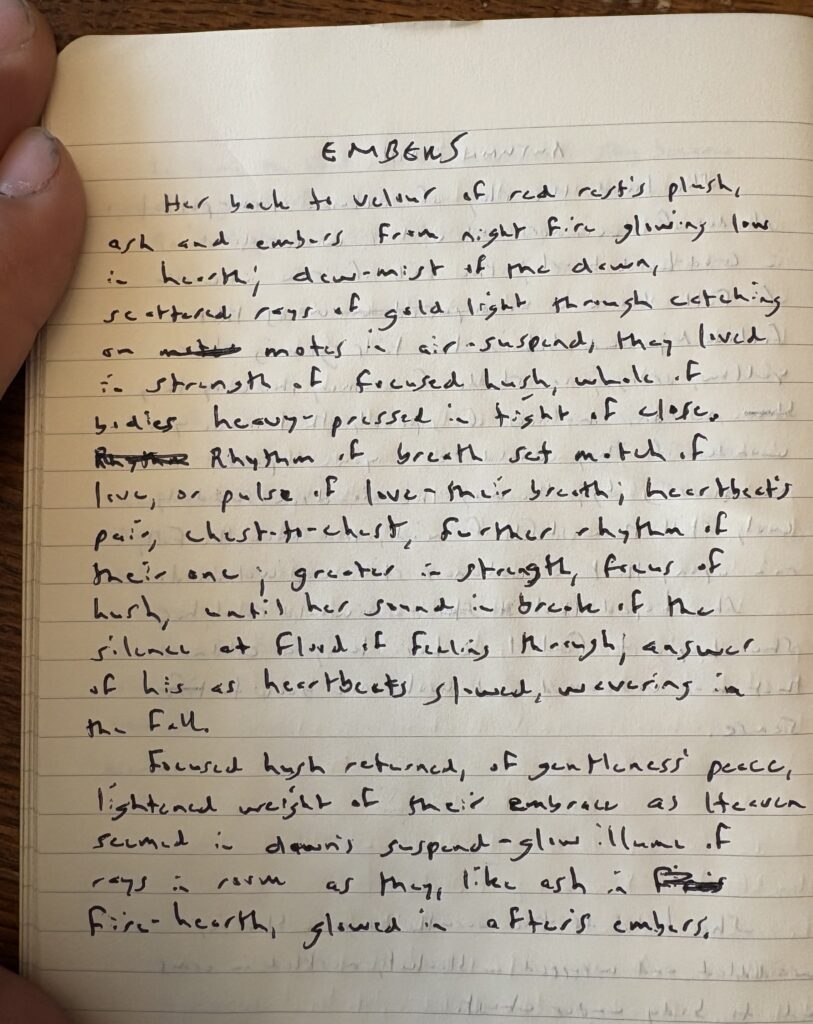 EMBERS
Her back to velour of red rest's plush,
ash and embers from night fire glowing low
in hearth; dew-mist of the dawn,
scattered rays of gold light through catching
on motes in air-suspend, they loved
in strength of focused hush, whole of
bodies heavy-pressed in tight of close.
Rhythm of breath set match of
love, or pulse of love-their breath; heartbeat's
pair, chest-to-chest, further rhythm of
their one; greater in strength, focus of
hush, until her sound in break of the
silence at flood of feeling through; answer
of his as heartbeats slowed, wavering in
the fall.
Focused hush returned, of gentleness' peace,
lightened weight of their embrace as Heaven
seemed in dawn's suspend-glow illume of
rays in room as they, like ash in
fire-hearth, glowed in after's embers.